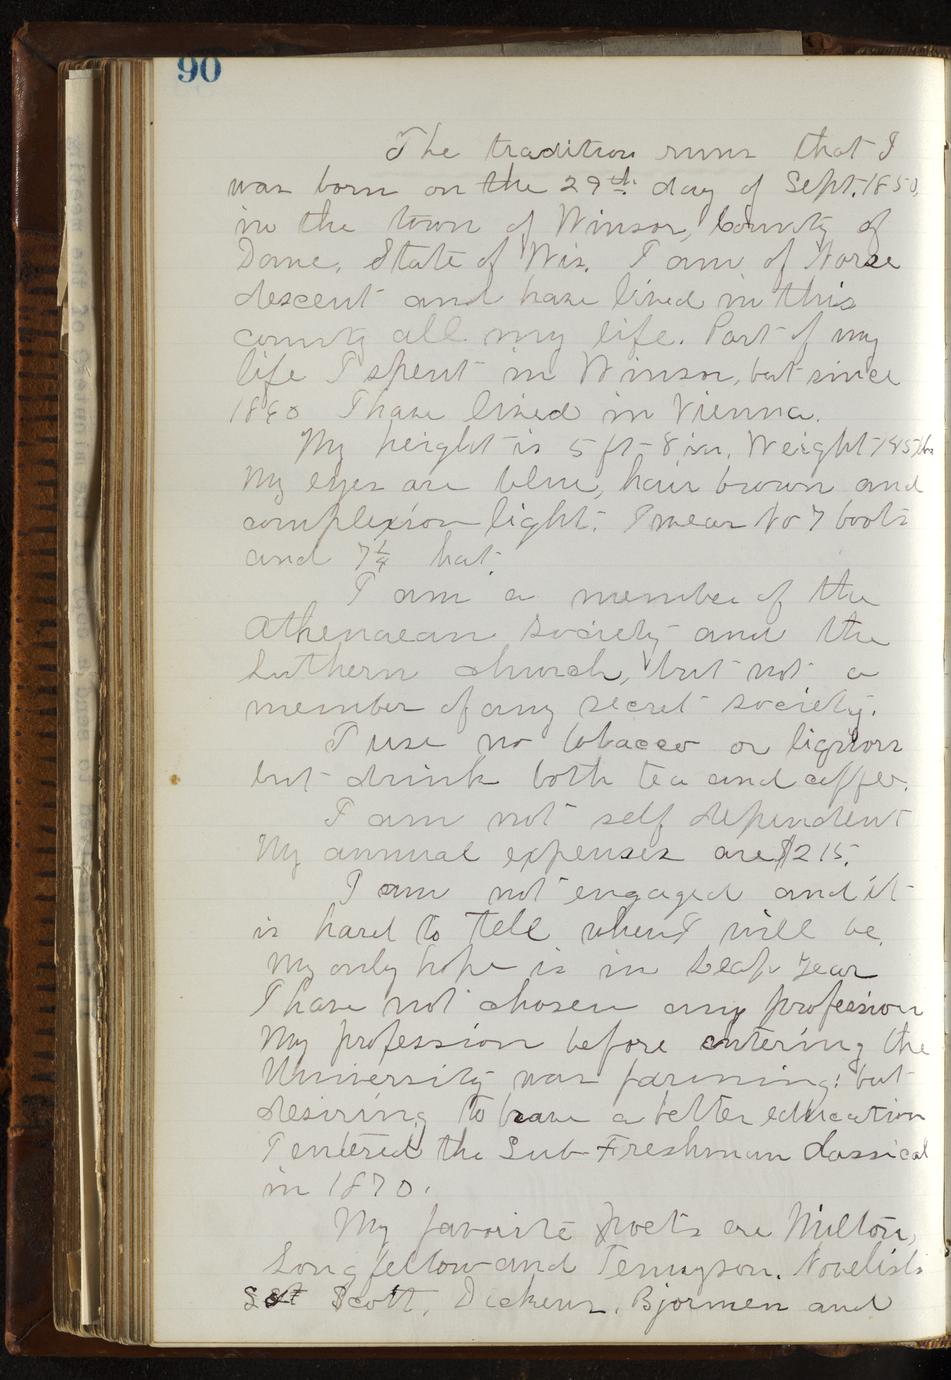 90
The tradition runs that I
was born on the 29th day of Sept. 1850,
in the town of Winsor, County of
Dane, State of Wis. I am of Norse
descent and have lived in this
county all my life. Part of my
life I spent in Winsor, but since
1860 I have lived in Vienna.
My height is 5 ft-8 in. Weight 145 lbs
My eyes are blue, hair brown and
complexion light. I wear No 7 boots
and 7 1/4 hat.
I am a member of the
Athenaean Society and the
Luthern church, but not a
member of any secret society.
I use no tobacco or liquors
but drink both tea and coffee.
I am not self dependent
My annual expenses are $215.
I am not engaged and it
is hard to tell when I will be.
My only hope is in Leap Year
I have not chosen any profession
My profession before entering the
University was farming; but
desiring to have a better education
I entered the Sub-Freshman Classical
in 1870.
My favorite poets are Milton,
Longfellow and Tennyson. Novelists
Scott, Dickens, Bjornen and